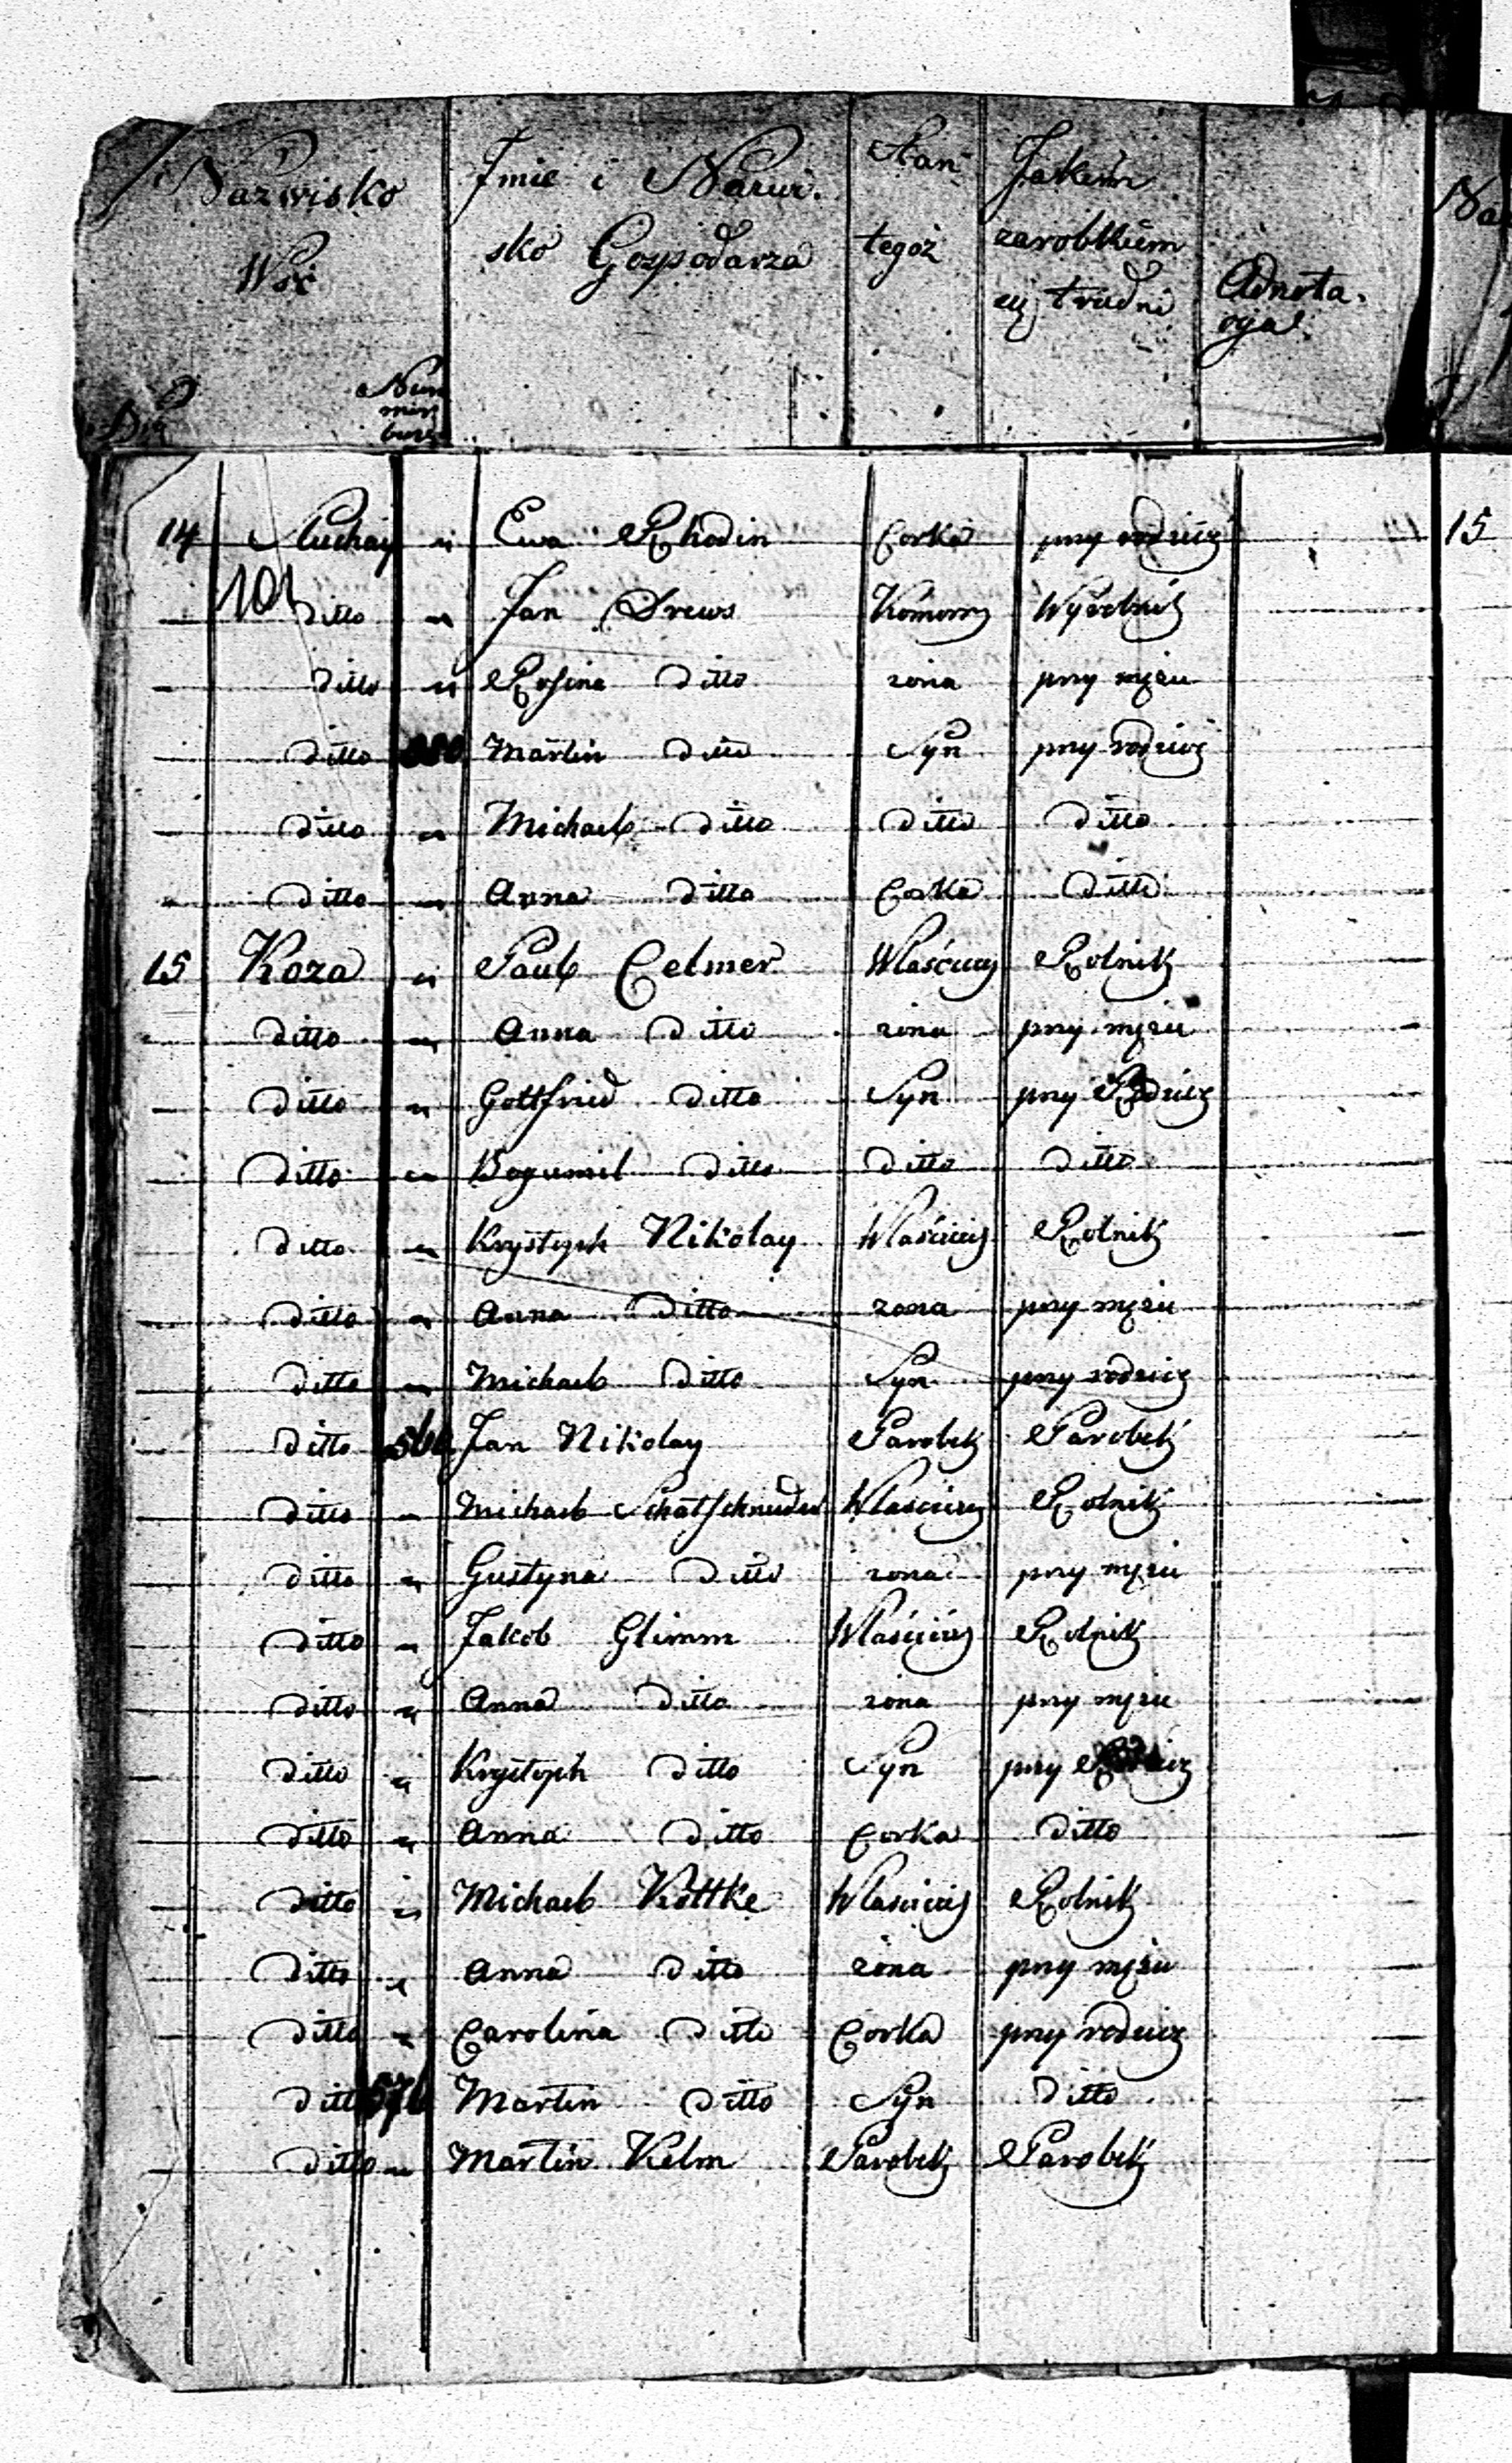 Nazwisko Wsi
Imie i Nazwi-
sko Gospodarza
Stan
tegoż
Jakiem
zarobkiem
się trudni
Adnota-
cyja
Na
14 Suchay " Ewa Rhodin Corka przy rodzicz 15
101 — ditto " Jan Drews Komorn Wyrobnik
— ditto " Rosina ditto zona przy mężu
— ditto Martin ditto Syn przy rodzicz
— ditto " Michael ditto ditto ditto
" ditto " Anna ditto Corka ditto
15 Koza " Paul Celmer Właściciel Rolnik
" ditto " Anna ditto zona przy mężu
— ditto " Gottfried ditto Syn przy Rodzicz
— ditto " Bogumil ditto ditto ditto
ditto " Krystoph Nikolay Właściciel Rolnik
— ditto " Anna ditto zona przy mężu
— ditto " Michael ditto Syn przy rodzicz
ditto Jan Nikolay Parobek Parobek
— ditto " Michael Właściciel Rolnik
— ditto " Gustyna ditto zona przy mężu
— ditto " Jakob Glimm Właściciel Rolnik
— ditto " Anna ditto zona przy mężu
— ditto " Krystoph ditto Syn przy Rodzicz
— ditto " Anna ditto Corka ditto
— ditto " Michael Kottke Właściciel Rolnik
— ditto " Anna ditto zona przy mężu
— ditto " Carolina ditto Corka przy rodzicz
ditto 570 Martin ditto Syn ditto
— ditto " Martin Kelm Parobek Parobek